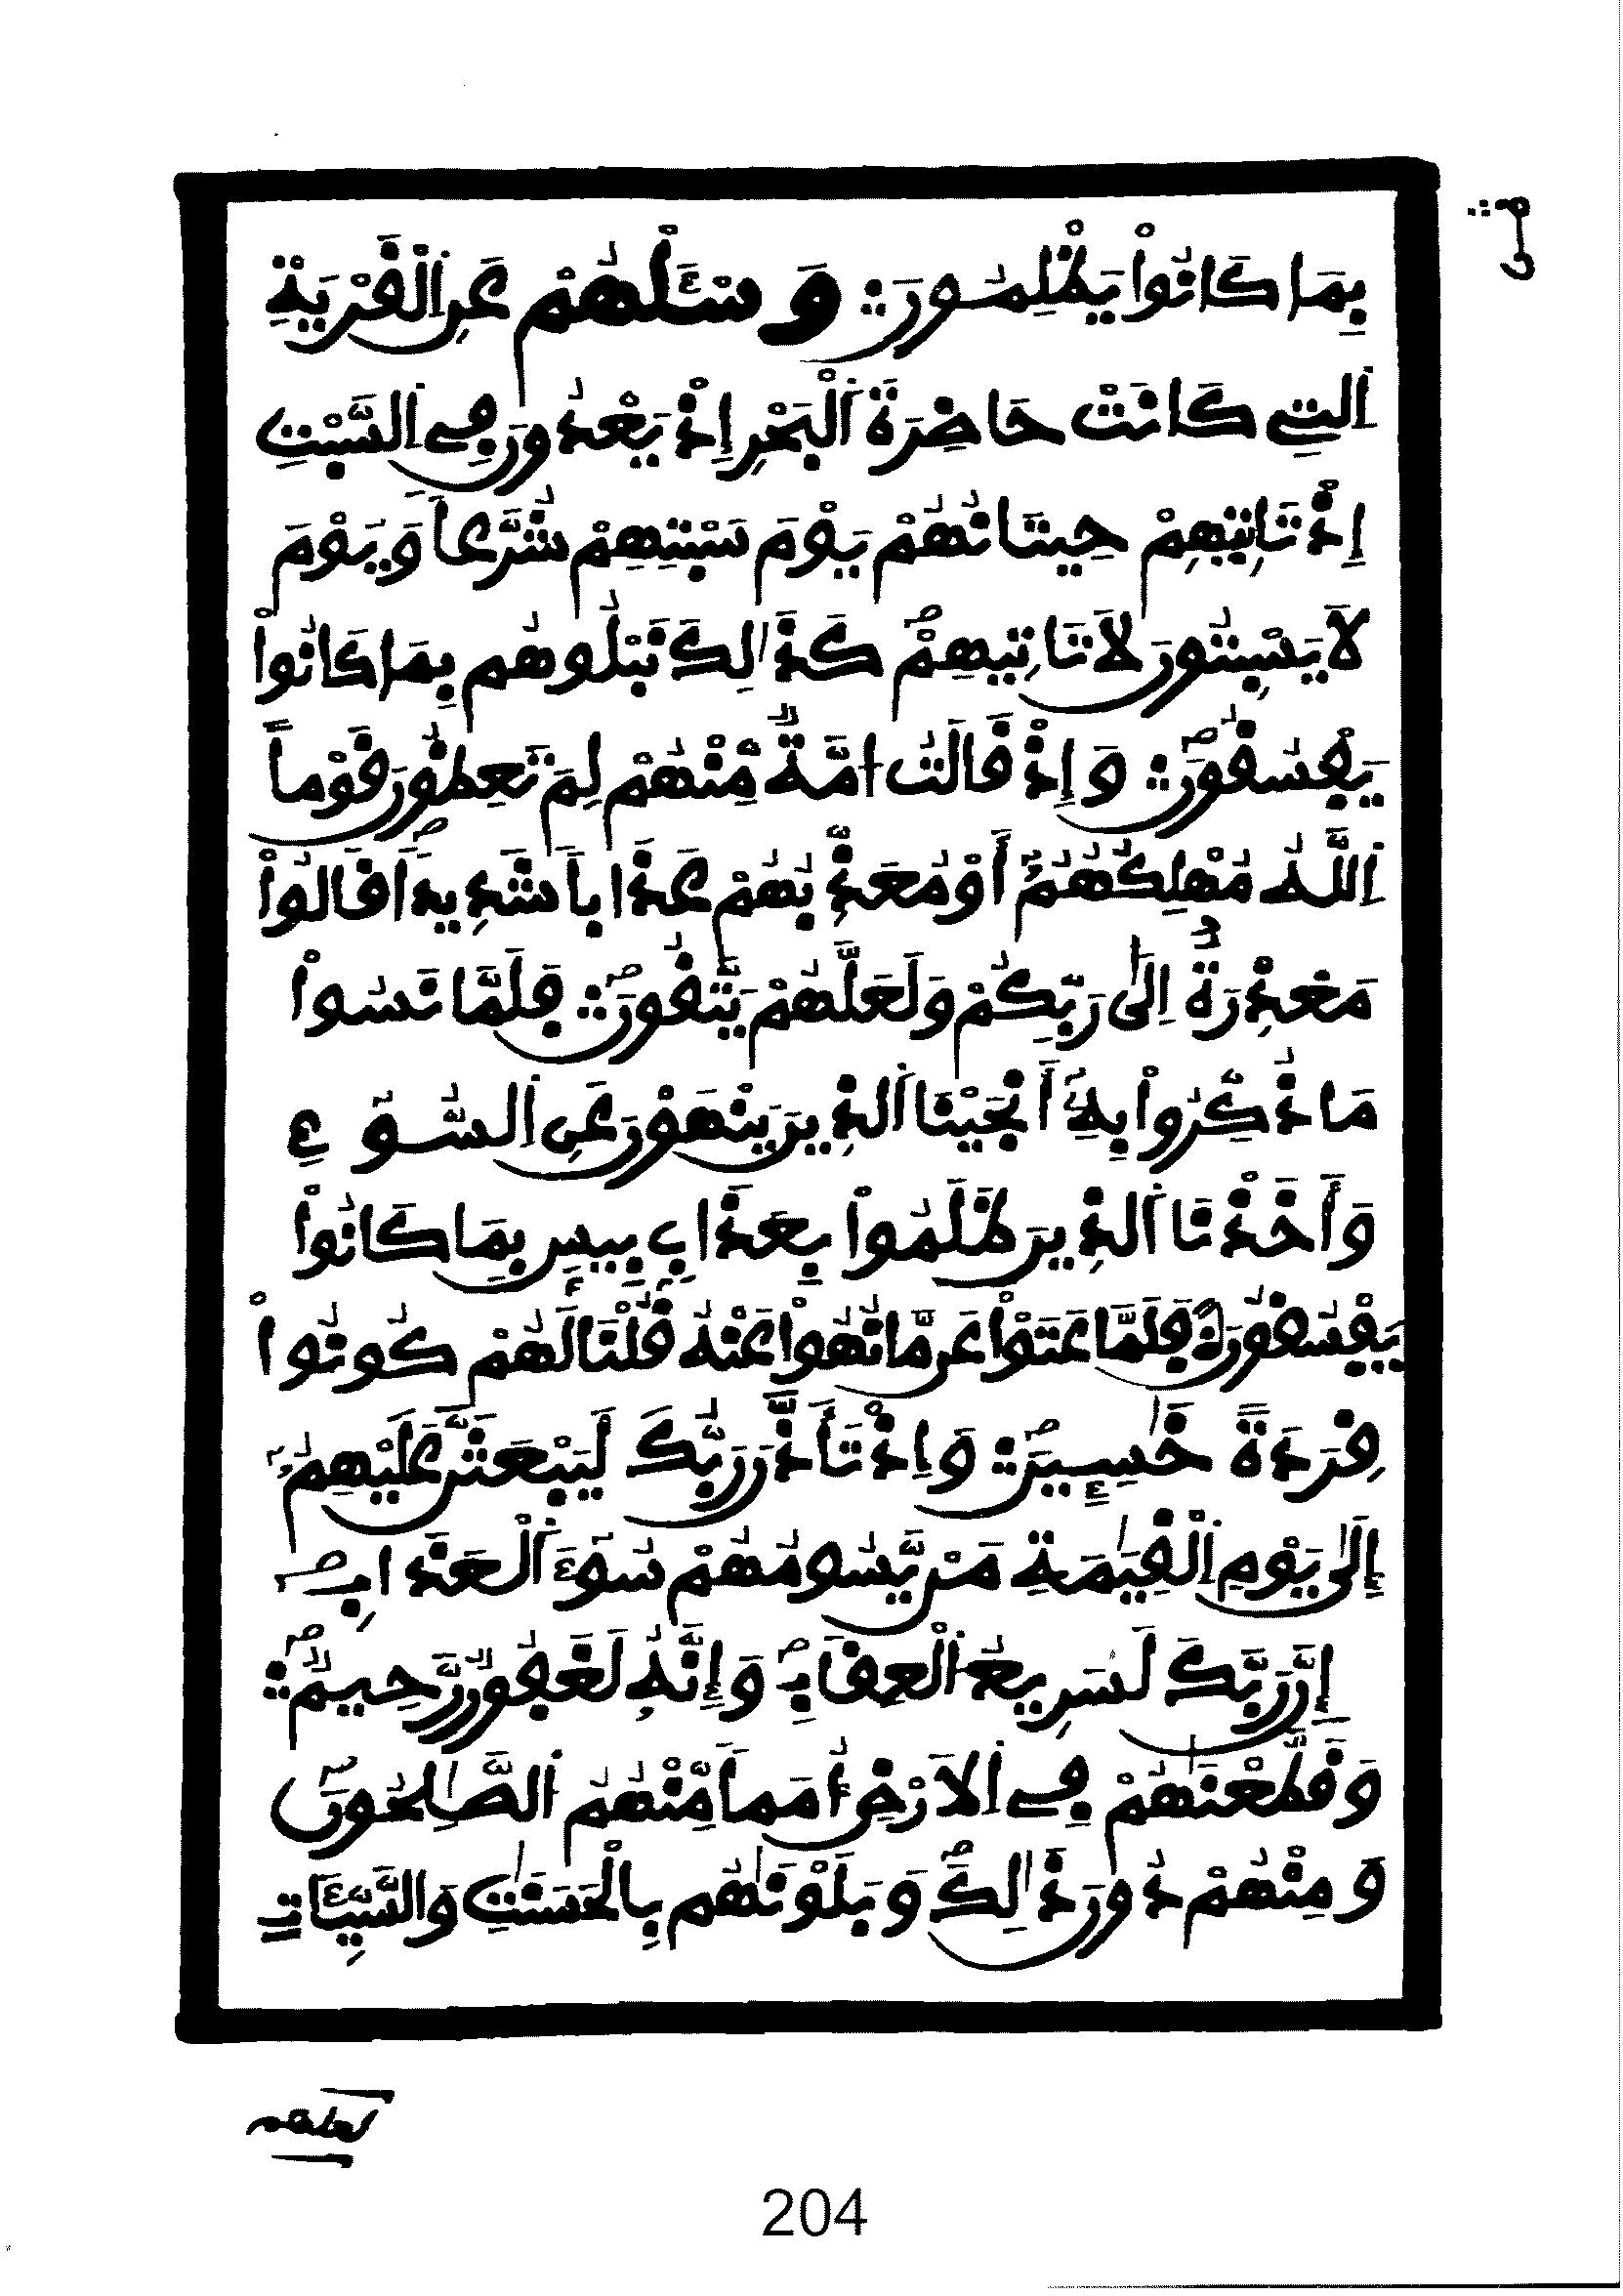 بِمَا كَانُواْ يَظْلِمُونَ ۞ وَسْـَٔلْهُمْ عَنِ اِ۬لْقَرْيَةِ
اِ۬لتِے كَانَتْ حَاضِرَةَ اَ۬لْبَحْرِ إِذْ يَعْدُونَ فِے اِ۬لسَّبْتِ
إِذْ تَاتِيهِمْ حِيتَانُهُمْ يَوْمَ سَبْتِهِمْ شُرَّعاً وَيَوْمَ
لاَ يَسْبِتُونَ لاَ تَاتِيهِمْ كَذَٰلِكَ نَبْلُوهُم بِمَا كَانُواْ
يَفْسُقُونَ وَإِذْ قَالَتُ ا۟مَّةٌ مِّنْهُمْ لِمَ تَعِظُونَ قَوْماً
اِ۬للَّهُ مُهْلِكُهُمُۥٓ أَوْ مُعَذِّبُهُمْ عَذَاباً شَدِيداً قَالُواْ
مَعْذِرَةٌ اِلَىٰ رَبِّكُمْ وَلَعَلَّهُمْ يَتَّقُونَ فَلَمَّا نَسُواْ
مَا ذُكِّرُواْ بِهِۦٓ أَنجَيْنَا اَ۬لذِينَ يَنْهَوْنَ عَنِ اِ۬لسُّوٓءِ
وَأَخَذْنَا اَ۬لذِينَ ظَلَمُواْ بِعَذَابِۢ بِيسِۢ بِمَا كَانُواْ
يَفْسُقُونَ فَلَمَّا عَتَوْاْ عَن مَّا نُهُواْ عَنْهُ قُلْنَا لَهُمْ كُونُواْ
قِرَدَةً خَٰسِـِٕينَ وَإِذْ تَأَذَّنَ رَبُّكَ لَيَبْعَثَنَّ عَلَيْهِمُۥٓ
إِلَىٰ يَوْمِ اِ۬لْقِيَٰمَةِ مَنْ يَّسُومُهُمْ سُوٓءَ اَ۬لْعَذَابِ
إِنَّ رَبَّكَ لَسَرِيعُ اُ۬لْعِقَابِ وَإِنَّهُۥ لَغَفُورٌ رَّحِيمٌ
وَقَطَّعْنَٰهُمْ فِے اِ۬لاَرْضِ أُمَماً مِّنْهُمُ اُ۬لصَّٰلِحُونَ
وَمِنْهُمْ دُونَ ذَٰلِكَ وَبَلَوْنَٰهُم بِالْحَسَنَٰتِ وَالسَّيِّـَٔاتِ
لعلهم
204